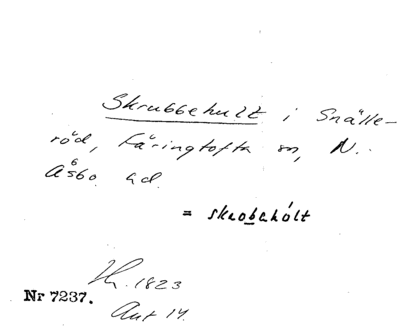 Skrubbehult i Snälle-
röd, Färingtofta sn, N.
Åsbo hd.
= skrobehólt
1823
Nr 7237.
Ant 14.